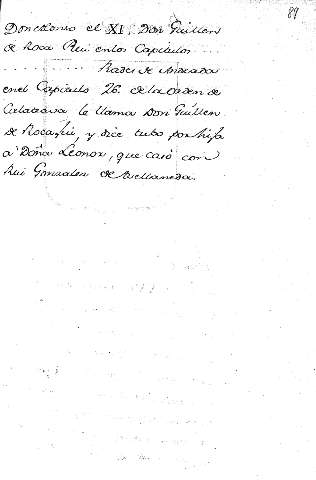 89
Don Alonso el XI, Don Guillen
de Roca Rui en los Capitulos . . . .
. . . . . . . . . . Rades de Andrada
en el Capitulo 26. de la orden de
Calatrava le llama Don Guillen
de Rocafui, y dice tubo por hija
a Doña Leonor, que casó con
Rui Gonzalez de Avellaneda.